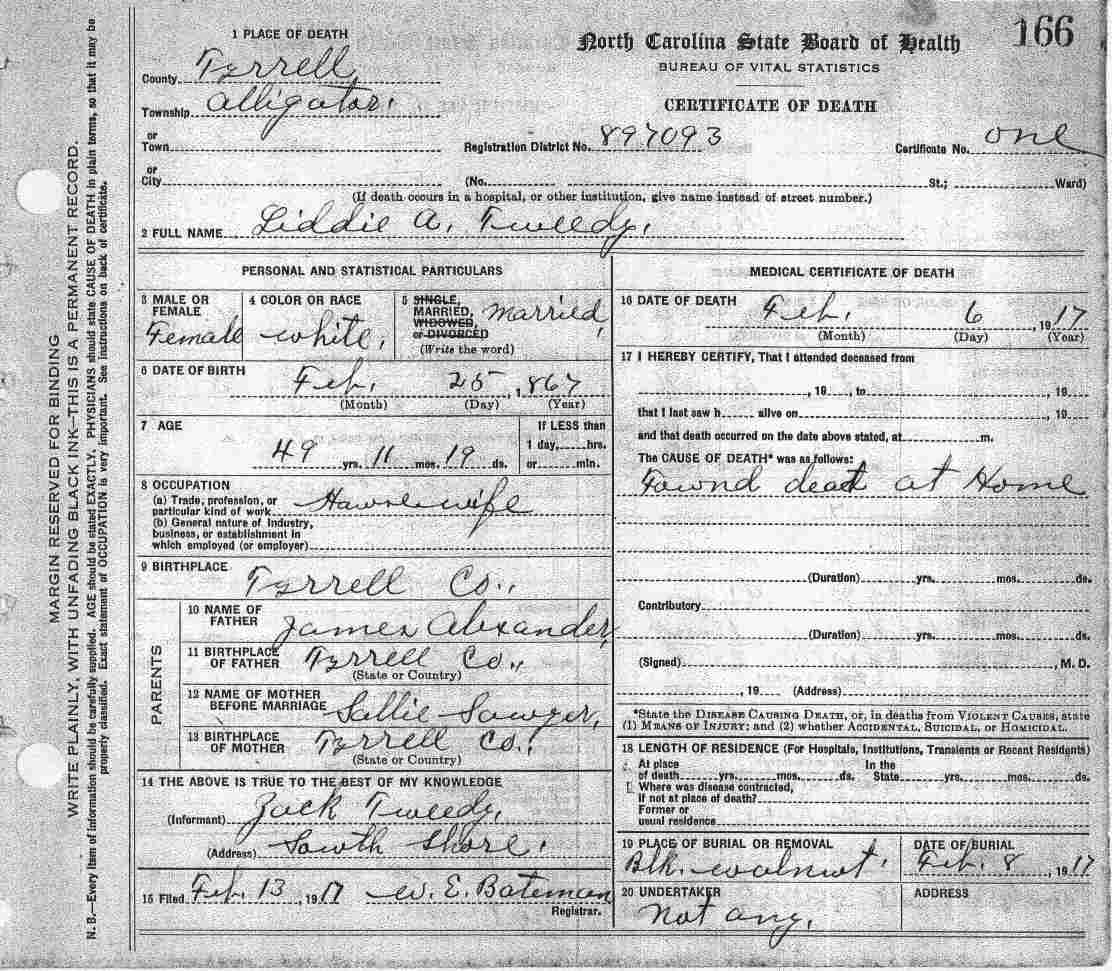 166
1 PLACE OF DEATH
North Carolina State Board of Health
BUREAU OF VITAL STATISTICS
CERTIFICATE OF DEATH
County Tyrrell
Township Alligator.
or
Town
Registration District No. 897093
Certificate No. one
or
City (No. St.; Ward)
(If death occurs in a hospital, or other institution, give name instead of street number.)
2 FULL NAME Liddie A. Tweedy.
PERSONAL AND STATISTICAL PARTICULARS
3 MALE OR FEMALE
Female
4 COLOR OR RACE
white.
5 SINGLE,
MARRIED,
WIDOWED,
or DIVORCED
(Write the word)
married,
6 DATE OF BIRTH
Feb. 25, 1867
(Month) (Day) (Year)
7 AGE
49 yrs. 11 mos. 19 ds.
If LESS than
1 day, hrs.
or min.
8 OCCUPATION
(a) Trade, profession, or
particular kind of work Hawsewife
(b) General nature of Industry,
business, or establishment in
which employed (or employer)
9 BIRTHPLACE
Tyrrell Co.,
PARENTS
10 NAME OF
FATHER
James Alexander,
11 BIRTHPLACE
OF FATHER
Tyrrell Co.,
(State or Country)
12 NAME OF MOTHER
BEFORE MARRIAGE
Sallie Sawyer,
13 BIRTHPLACE
OF MOTHER
Tyrrell Co.,
(State or Country)
14 THE ABOVE IS TRUE TO THE BEST OF MY KNOWLEDGE
(Informant) Zack Tweedy,
(Address) Sowth Shore.
15 Filed Feb. 13, 1917 W. E. Bateman
Registrar.
MEDICAL CERTIFICATE OF DEATH
16 DATE OF DEATH
Feb. 6, 1917
(Month) (Day) (Year)
17 I HEREBY CERTIFY, That I attended deceased from
, 19 , to , 19
that I last saw h alive on , 19
and that death occurred on the date above stated, at m.
The CAUSE OF DEATH* was as follows:
Fownd dead at Home
(Duration) yrs. mos. ds.
Contributory
(Duration) yrs. mos. ds.
(Signed) , M. D.
, 19 (Address)
*State the DISEASE CAUSING DEATH, or, in deaths from VIOLENT CAUSES, state
(1) MEANS OF INJURY; and (2) whether ACCIDENTAL, SUICIDAL, or HOMICIDAL.
18 LENGTH OF RESIDENCE (For Hospitals, Institutions, Transients or Recent Residents)
At place of death yrs. mos. ds. In the State yrs. mos. ds.
Where was disease contracted,
if not at place of death?
Former or
usual residence
19 PLACE OF BURIAL OR REMOVAL
Blk. walnwt.
DATE OF BURIAL
Feb. 8, 1917
20 UNDERTAKER
not any.
ADDRESS
MARGIN RESERVED FOR BINDING
WRITE PLAINLY, WITH UNFADING BLACK INK—THIS IS A PERMANENT RECORD.
N. B.—Every item of information should be carefully supplied. AGE should be stated EXACTLY. PHYSICIANS should state CAUSE OF DEATH in plain terms, so that it may be
properly classified. Exact statement of OCCUPATION is very important. See instructions on back of certificate.